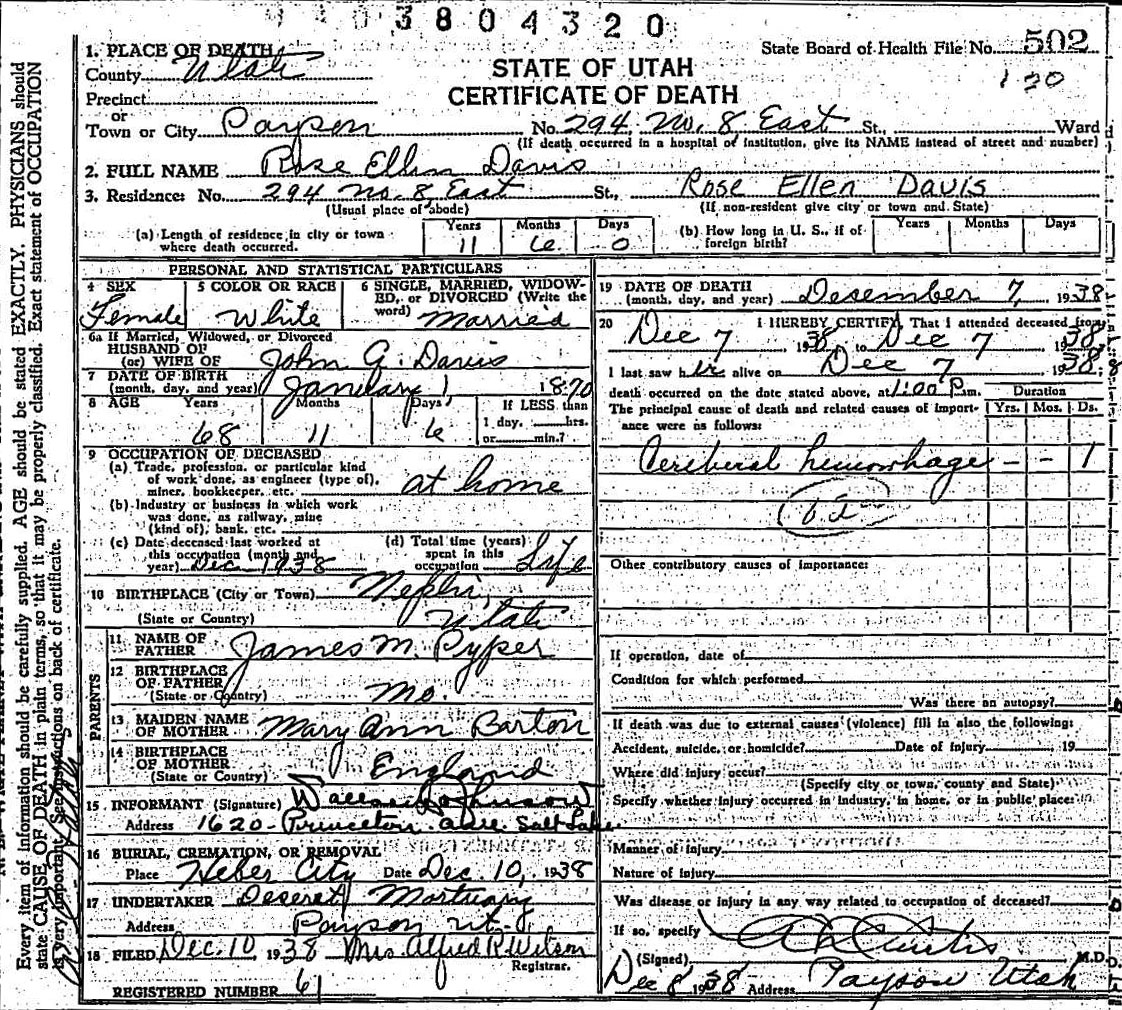 3804320
1. PLACE OF DEATH
County Utah
State Board of Health File No. 502
130
STATE OF UTAH
CERTIFICATE OF DEATH
Precinct
or
Town or City Payson No. 294 No. 8 East St., Ward
(If death occurred in a hospital or institution, give its NAME instead of street and number)
2. FULL NAME Rose Ellen Davis
3. Residence: No. 294 No. 8, East St., Rose Ellen Davis
(Usual place of abode) (If non-resident give city or town and State)
(a) Length of residence in city or town where death occurred. Years 11 Months 6 Days 0
(b) How long in U. S., if of foreign birth? Years Months Days
PERSONAL AND STATISTICAL PARTICULARS
4 SEX Female
5 COLOR OR RACE White
6 SINGLE, MARRIED, WIDOWED, or DIVORCED (Write the word) Married
6a If Married, Widowed, or Divorced
HUSBAND OF
(or) WIFE OF John G. Davis
7 DATE OF BIRTH
(month, day, and year) January 1 1870
8 AGE Years 68 Months 11 Days 6
If LESS than
1 day, hrs.
or min.?
9 OCCUPATION OF DECEASED
(a) Trade, profession, or particular kind
of work done, as engineer (type of),
miner, bookkeeper, etc. at home
(b) Industry or business in which work
was done, as railway, mine
(kind of), bank, etc.
(c) Date deceased last worked at
this occupation (month and
year) Dec 1938
(d) Total time (years)
spent in this
occupation Life
10 BIRTHPLACE (City or Town) Nephi,
(State or Country) Utah
PARENTS
11 NAME OF
FATHER James M. Pyper
12 BIRTHPLACE
OF FATHER
(State or Country) Mo.
13 MAIDEN NAME
OF MOTHER Mary Ann Barton
14 BIRTHPLACE
OF MOTHER
(State or Country) England
15 INFORMANT (Signature) Wallace Johnson
Address 1620 Princeton ave. Salt Lake
16 BURIAL, CREMATION, OR REMOVAL
Place Heber City Date Dec. 10, 1938
17 UNDERTAKER Deseret Mortuary
Address Payson Ut.
18 FILED Dec. 10 1938 Mrs. Alfred R. Wilson
Registrar.
REGISTERED NUMBER 61
19 DATE OF DEATH
(month, day, and year) Desember 7, 1938
20 I HEREBY CERTIFY, That I attended deceased from
Dec 7 1938 to Dec 7 1938
I last saw her alive on Dec 7 1938;
death occurred on the date stated above, at 1:00 P.m. Duration
The principal cause of death and related causes of importance were as follows: Yrs. Mos. Ds.
Cereberal hemorrhage - - 1
Other contributory causes of importance:
If operation, date of
Condition for which performed
Was there an autopsy?
If death was due to external causes (violence) fill in also the following:
Accident, suicide, or homicide? Date of injury , 19
Where did injury occur?
(Specify city or town, county and State)
Specify whether injury occurred in industry, in home, or in public place:
Manner of injury
Nature of injury
Was disease or injury in any way related to occupation of deceased?
If so, specify
(Signed) A L Curtis M.D.
Dec 8 1938 Address Payson Utah
Every item of information should be carefully supplied. AGE should be stated EXACTLY. PHYSICIANS should
state CAUSE OF DEATH in plain terms, so that it may be properly classified. Exact statement of OCCUPATION
is very important. See instructions on back of certificate.